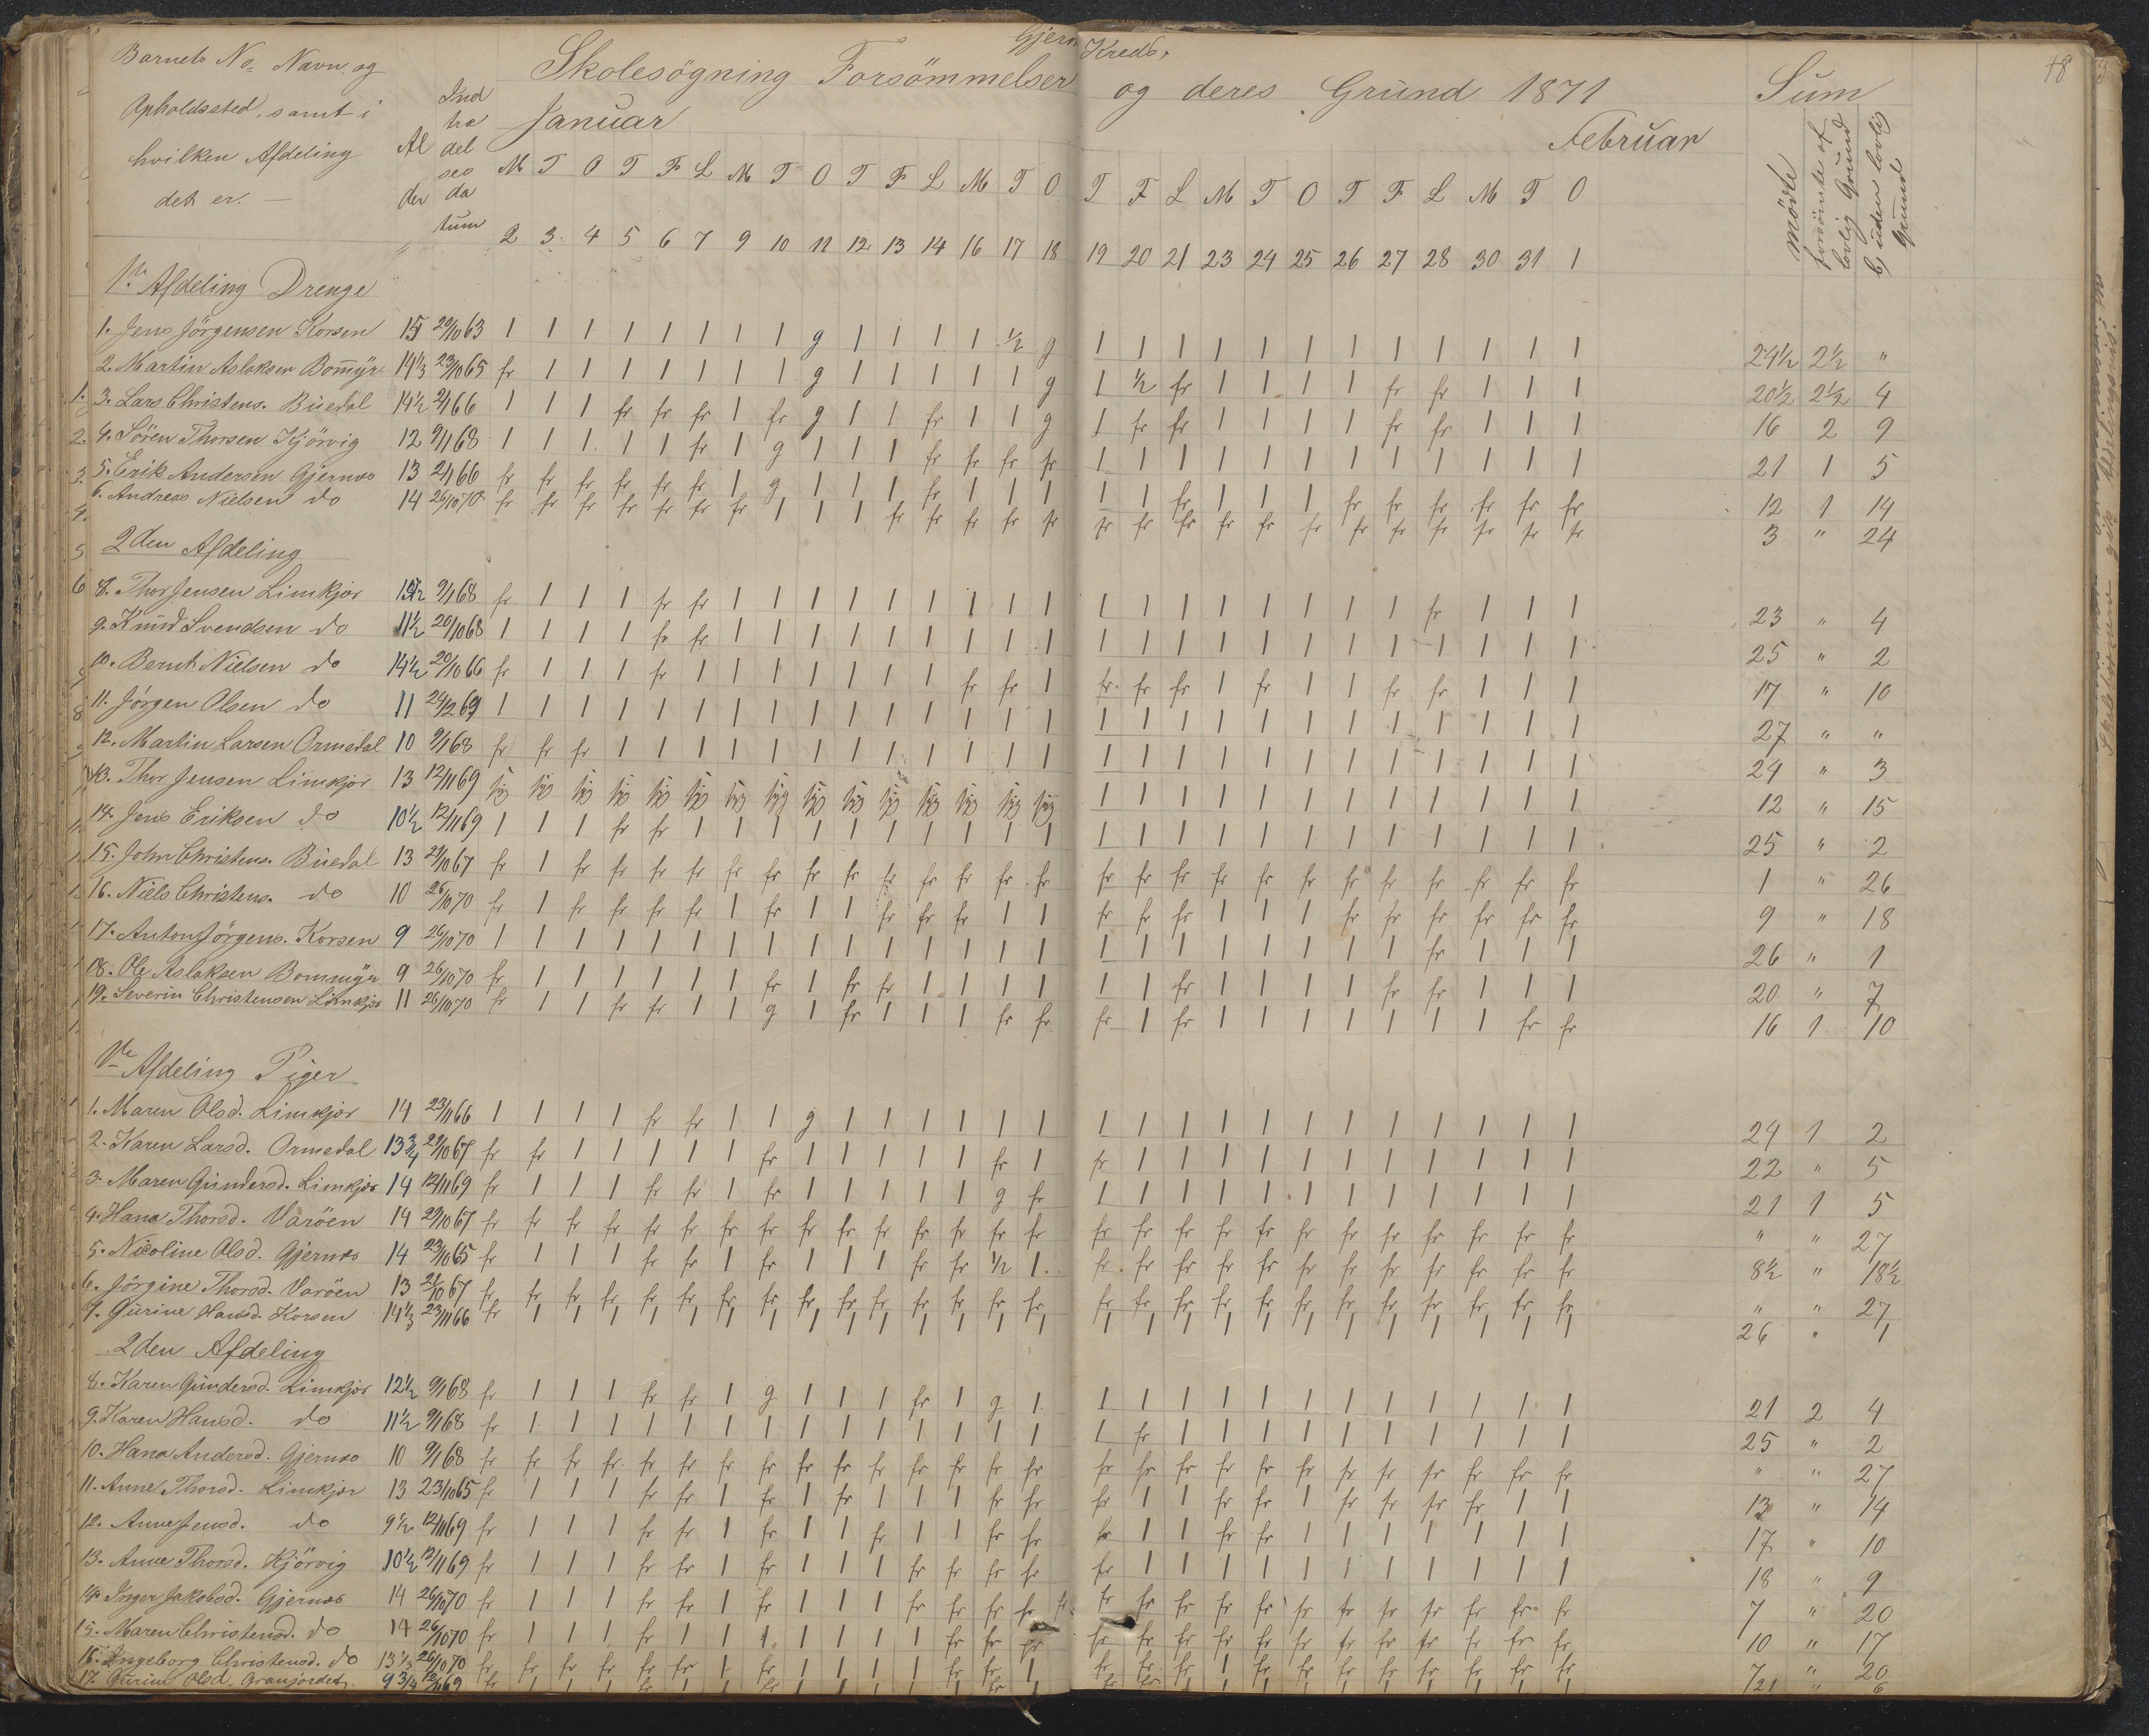 Gjern Kreds.
Skolesögning Forsömmelser og deres Grund 1871
Barnets No. Navn og
Opholdssted, samt i
hvilken Afdeling
det er. —
Al der
Ind træ del ses da tum
Januar
Februar
Sum
48
M T O T F L M T O T F L M T O T F L M T O T F L M T O
møtte
forsömte af lovlig Grund
b, uden lovlig Grund
2 3 4 5 6 7 9 10 11 12 13 14 16 17 18 19 20 21 23 24 25 26 27 28 30 31 1
1ste Afdeling Drenge
1. Jens Jörgensen Korsen 15 20/10 63 1 1 1 1 1 1 1 1 g 1 1 1 1 ½ g 1 1 1 1 1 1 1 1 1 1 1 1 24½ 2½ "
2. Martin Aslaksen Bomyr 14⅓ 23/10 65 fr 1 1 1 1 1 1 1 g 1 1 1 1 1 g 1 ½ fr 1 1 1 1 fr fr 1 1 1 20½ 2½ 4
3. Lars Christens. Buedal 14½ 2/1 66 1 1 1 fr fr fr 1 fr g 1 1 fr 1 1 g 1 fr fr 1 1 1 1 fr fr 1 1 1 16 2 9
4. Sören Thorsen Kjörvig 12 9/1 68 1 1 1 1 1 fr 1 g 1 1 1 fr fr fr fr 1 1 1 1 1 1 1 1 1 1 1 1 21 1 5
5. Erik Andersen Gjernæs 13 2/1 66 fr fr fr fr fr fr 1 g 1 1 1 fr 1 1 1 1 1 fr 1 1 1 fr fr fr fr fr fr 12 1 14
6. Andreas Nielsen do 14 26/10 70 fr fr fr fr fr fr fr 1 1 1 fr fr fr fr fr fr fr fr fr fr fr fr fr fr fr fr fr 3 " 24
2den Afdeling
8. Thor Jensen Limkjær 9/1 68 fr 1 1 1 fr fr 1 1 1 1 1 1 1 1 1 1 1 1 1 1 1 1 1 fr 1 1 1 23 " 4
9. Knud Svendsen do 11½ 20/10 68 1 1 1 1 fr fr 1 1 1 1 1 1 1 1 1 1 1 1 1 1 1 1 1 1 1 1 1 25 " 2
10. Bernt Nielsen do 14½ 20/10 66 fr 1 1 1 fr 1 1 1 1 1 1 1 fr fr 1 fr fr fr 1 fr 1 1 fr fr 1 1 1 17 " 10
11. Jörgen Olsen do 11 24/2 69 1 1 1 1 1 1 1 1 1 1 1 1 1 1 1 1 1 1 1 1 1 1 1 1 1 1 1 27 " "
12. Martin Larsen Ormedal 10 9/1 68 fr fr fr 1 1 1 1 1 1 1 1 1 1 1 1 1 1 1 1 1 1 1 1 1 1 1 1 24 " 3
13. Thor Jensen Limkjær 13 12/11 69 1 1 1 1 1 1 1 1 1 1 1 1 12 " 15
14. Jens Eriksen do 10½ 12/11 69 1 1 1 fr fr 1 1 1 1 1 1 1 1 1 1 1 1 1 1 1 1 1 1 1 1 1 1 25 " 2
15. John Christens. Buedal 13 29/10 67 fr 1 fr fr fr fr fr fr fr fr fr fr fr fr fr fr fr fr fr fr fr fr fr fr fr fr fr 1 " 26
16. Niels Christens. do 10 26/10 70 fr 1 fr fr fr fr 1 fr 1 1 fr fr fr 1 1 fr fr fr 1 1 1 fr fr fr fr fr fr 9 " 18
17. Anton Jörgens. Korsen 9 26/10 70 1 1 1 1 1 1 1 1 1 1 1 1 1 1 1 1 1 1 1 1 1 1 1 fr 1 1 1 26 " 1
18. Ole Aslaksen Bommyr 9 26/10 70 fr 1 1 1 1 1 1 fr 1 fr fr 1 1 1 1 1 1 fr 1 1 1 1 fr fr 1 1 1 20 " 7
19. Severin Christensen Limkjær 11 26/10 70 fr 1 1 fr fr 1 1 g 1 fr 1 1 1 fr fr fr 1 fr 1 1 1 1 1 1 1 fr fr 16 1 10
1ste Afdeling Piger
1. Maren Olsd. Limkjær 14 23/11 66 1 1 1 1 fr fr 1 1 g 1 1 1 1 1 1 1 1 1 1 1 1 1 1 1 1 1 1 24 1 2
2. Karen Larsd. Ormedal 13¾ 29/10 67 fr fr 1 1 1 1 1 fr 1 1 1 1 1 fr 1 fr 1 1 1 1 1 1 1 1 1 1 1 22 " 5
3. Maren Gundersd. Limkjær 14 12/11 69 fr 1 1 1 fr fr 1 fr 1 1 1 1 1 g fr 1 1 1 1 1 1 1 1 1 1 1 1 21 1 5
4. Hana Thorsd. Varöen 14 29/10 67 fr fr fr fr fr fr fr fr fr fr fr fr fr fr fr fr fr fr fr fr fr fr fr fr fr fr fr " " 27
5. Nicoline Olsd. Gjernæs 14 23/10 65 fr 1 1 1 fr fr 1 fr 1 1 1 fr fr ½ 1 fr fr fr fr fr fr fr fr fr fr fr fr 8½ " 18½
6. Jörgine Thorsd. Varöen 13 2/10 67 fr fr fr fr fr fr fr fr fr fr fr fr fr fr fr fr fr fr fr fr fr fr fr fr fr fr fr " " 27
7. Gurine Hansd. Korsen 14⅓ 23/11 66 fr 1 1 1 1 1 1 1 1 1 1 1 1 1 1 1 1 1 1 1 1 1 1 1 1 1 1 26 " 1
2den Afdeling
8. Karen Gundersd. Limkjær 12½ 9/1 68 fr 1 1 1 fr fr 1 g 1 1 1 fr 1 g 1 1 1 1 1 1 1 1 1 1 1 1 1 21 2 4
9. Karen Hansd. do 11½ 9/1 68 fr 1 1 1 1 1 1 1 1 1 1 1 1 1 1 1 fr 1 1 1 1 1 1 1 1 1 1 25 " 2
10. Hana Andersd. Gjernæs 10 9/1 68 fr fr fr fr fr fr fr fr fr fr fr fr fr fr fr fr fr fr fr fr fr fr fr fr fr fr fr " " 27
11. Anne Thorsd. Limkjær 13 23/10 65 fr 1 1 1 fr fr 1 fr 1 fr 1 1 1 fr fr fr 1 1 fr fr 1 fr fr fr fr 1 1 13 " 14
12. Anne Jensd. do 9½ 12/11 69 fr 1 1 1 fr fr 1 fr 1 1 fr 1 1 fr fr fr 1 1 fr fr 1 1 1 1 1 1 1 17 " 10
13. Anne Thorsd. Kjörvig 10½ 12/11 69 fr 1 1 1 fr fr 1 fr 1 1 1 fr fr fr fr fr 1 1 1 1 1 1 1 1 1 1 1 18 " 9
14. Inger Jakobsd. Gjernæs 14 26/10 70 fr 1 1 1 fr fr 1 fr 1 1 1 fr fr fr fr fr fr fr fr fr fr fr fr fr fr fr fr 7 " 20
15. Maren Christensd. do 14 26/10 70 fr 1 1 1 fr 1 1 1 1 1 1 1 fr fr fr fr fr fr fr fr fr fr fr fr fr fr fr 10 " 17
16. Ingeborg Christensd. do 13½ 26/10 70 fr fr fr fr fr fr 1 fr 1 1 1 1 fr fr 1 fr fr fr 1 fr fr fr fr fr fr fr fr 7 " 20
17. Gurine Olsd. Granjordet 9¾ 12/11 69 21 " 6